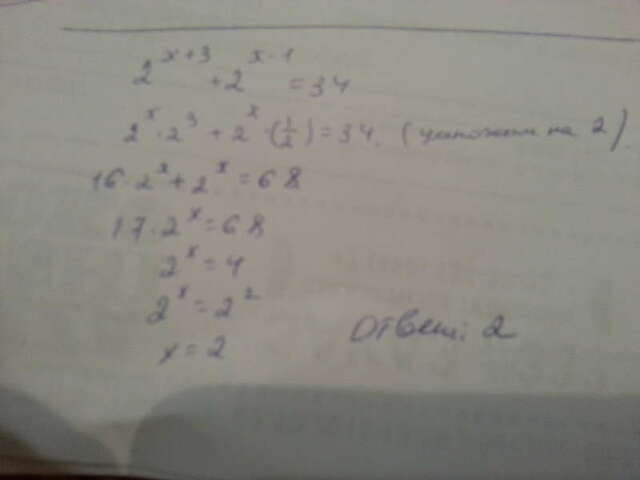 2^{x+3} + 2^{x-1} = 34
2^x · 2^3 + 2^x · (1/2) = 34. (умножим на 2).
16 · 2^x + 2^x = 68
17 · 2^x = 68
2^x = 4
2^x = 2^2
x = 2
Ответ: 2